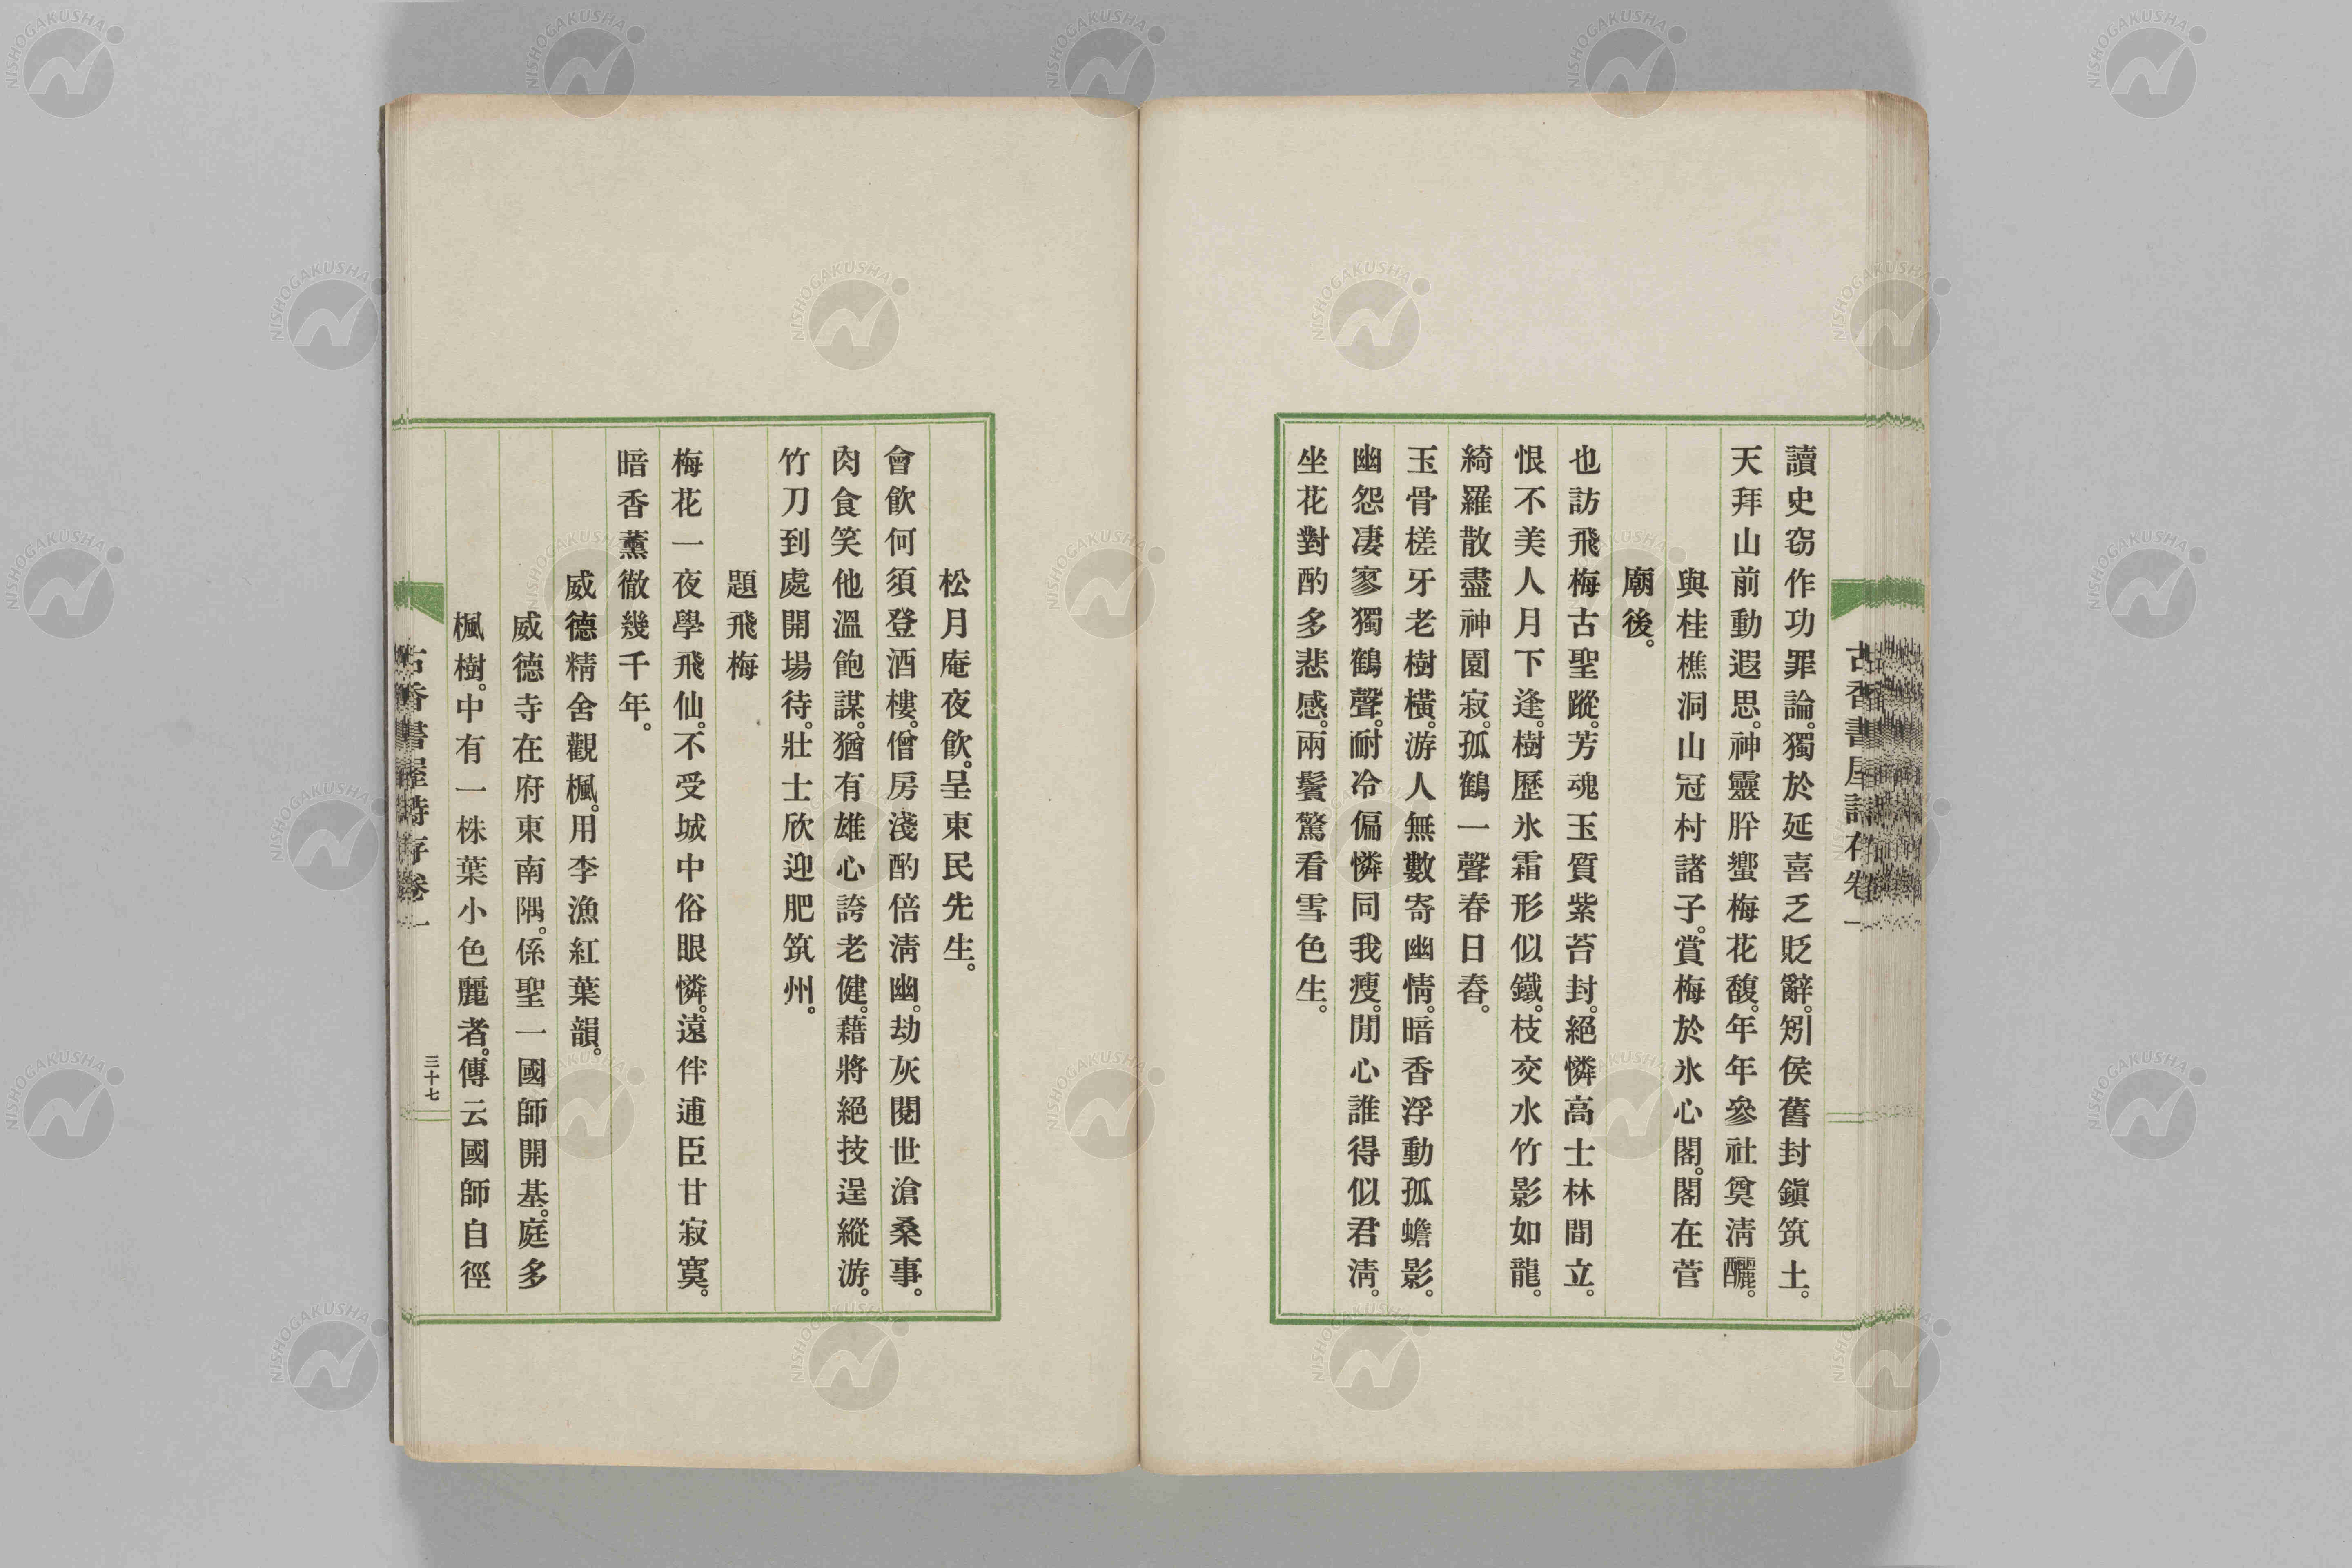 讀史窃作功罪論。獨於延喜乏貶辭。矧侯舊封鎭筑土。
天拜山前動遐思。神靈肸蠁梅花馥。年年參社奠淸釃。
與桂樵洞山冠村諸子。賞梅於氷心閣。閣在菅
廟後。
也訪飛梅古聖蹤。芳魂玉質紫苔封。絕憐高士林間立。
恨不美人月下逢。樹歷氷霜形似鐵。枝交水竹影如龍。
綺羅散盡神園寂。孤鶴一聲春日舂。
玉骨槎牙老樹橫。游人無數寄幽情。暗香浮動孤蟾影。
幽怨凄寥獨鶴聲。耐冷偏憐同我瘦。閒心誰得似君淸。
坐花對酌多悲感。兩鬢驚看雪色生。
松月庵夜飮。呈東民先生。
會飮何須登酒樓。僧房淺酌倍淸幽。劫灰閱世滄桑事。
肉食笑他溫飽謀。猶有雄心誇老健。藉將絕技逞縱游。
竹刀到處開場待。壯士欣迎肥筑州。
題飛梅
梅花一夜學飛仙。不受城中俗眼憐。遠伴逋臣甘寂寞。
暗香薰徹幾千年。
威德精舍觀楓。用李漁紅葉韻。
威德寺在府東南隅。係聖一國師開基。庭多
楓樹。中有一株葉小色麗者。傳云國師自徑
古香書屋詩存卷一
三十七
NISHOGAKUSHA